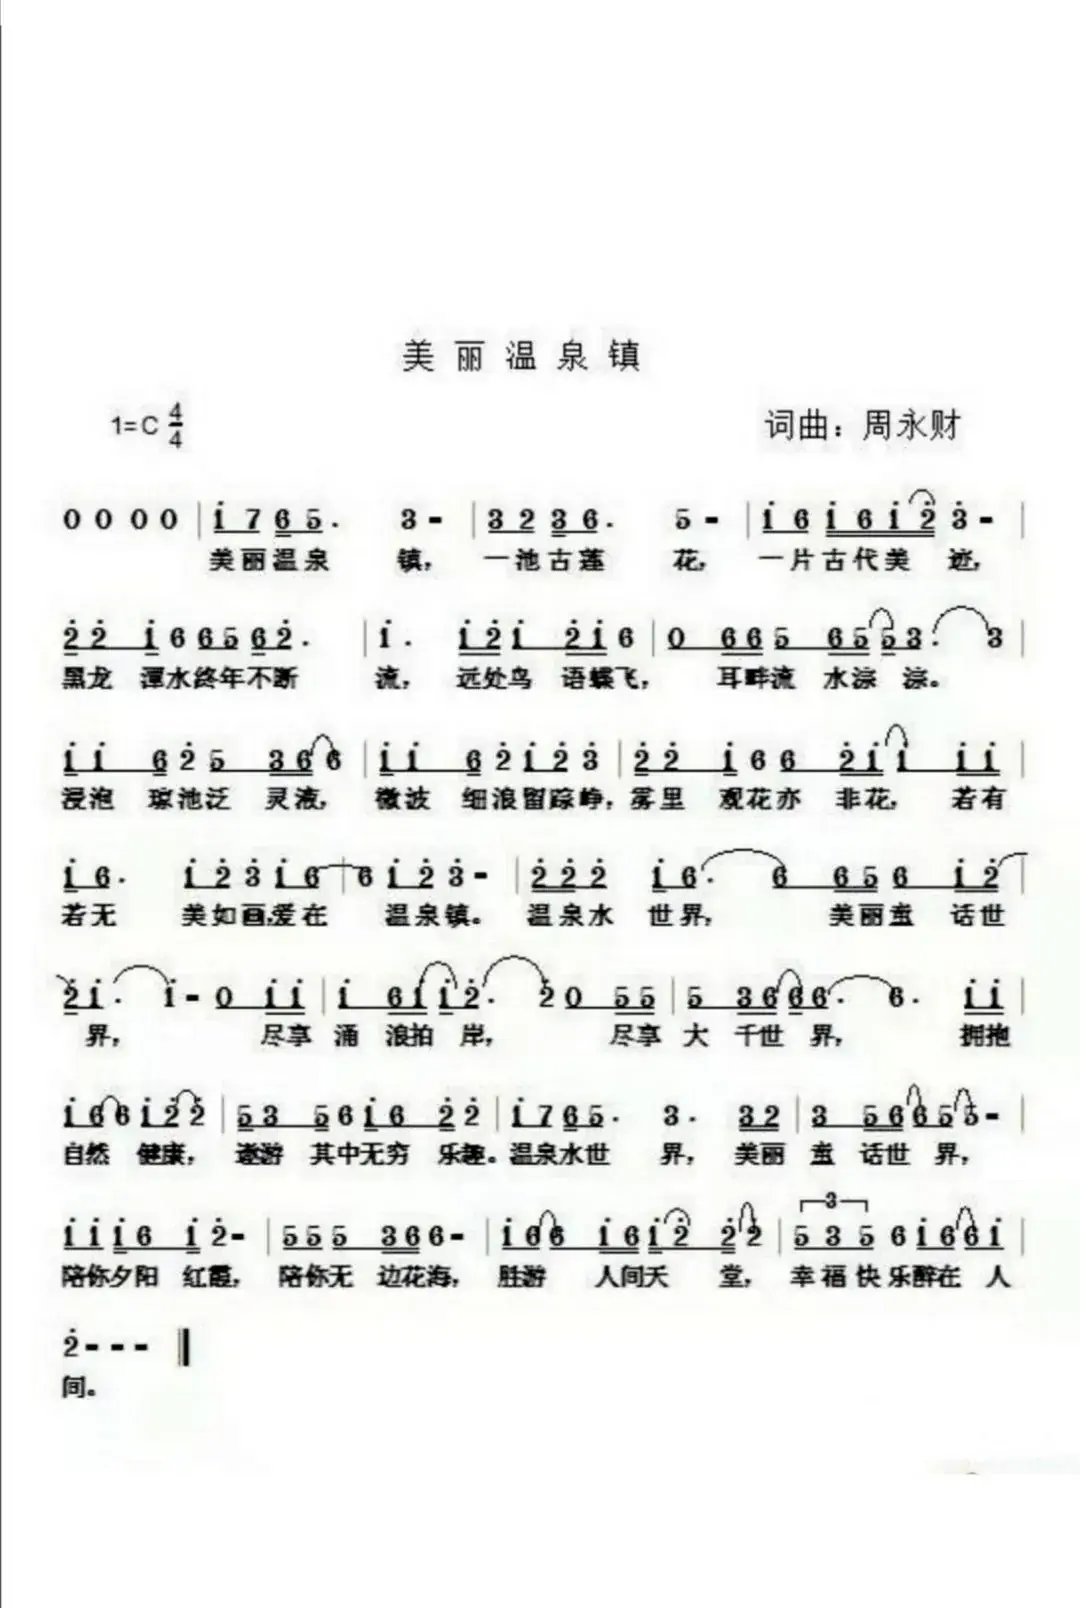 美丽温泉镇
1=C 4/4 词曲：周永财
0 0 0 0 | i 7 6 5 . 3 - | 3 2 3 6 . 5 - | i 6 i 6 i 2̇ 3̇ - |
美丽温泉 镇， 一池古莲 花， 一片古代美 迹，
2̇ 2̇ i 6 6 5 6 2̇ . | i . i 2̇ i 2̇ i 6 | 0 6 6 5 6 5 5 3 . 3 |
黑龙 潭水终年不断 流， 远处鸟 语蝶飞， 耳畔流 水淙 淙。
i i 6 2̇ 5 3 6 6 | i i 6 2̇ i 2̇ 3̇ | 2̇ 2̇ i 6 6 2̇ i i i i |
浸泡 琼池泛 灵液， 微波 细浪留踪峥， 雾里 观花亦 非花， 若有
i 6 . i 2̇ 3̇ i 6 | 6 i 2̇ 3̇ - | 2̇ 2̇ 2̇ i 6 . 6 6 5 6 i 2̇ |
若无 美如画，爱在 温泉镇。 温泉水 世界， 美丽童 话世
2̇ i . i - 0 i i | i 6 i i 2̇ . 2 0 5 5 | 5 3 6 6 6 . 6 . i i |
界， 尽享 涌 浪拍 岸， 尽享 大 千世 界， 拥抱
i 6 6 i 2̇ 2̇ | 5 3 5 6 i 6 2̇ 2̇ | i 7 6 5 . 3 . 3 2 | 3 5 6 6 5 5 - |
自然 健康， 遨游 其中无穷 乐趣。温泉水世 界， 美丽 童 话世 界，
i i i 6 i 2̇ - | 5 5 5 3 6 6 - | i 6 6 i 6 i 2̇ 2̇ 2̇ | 5 3 5 6 i 6 6 i |
3
陪你夕阳 红霞， 陪你无 边花海， 胜游 人间天 堂， 幸福快乐醉在 人
2̇ - - - ‖
间。